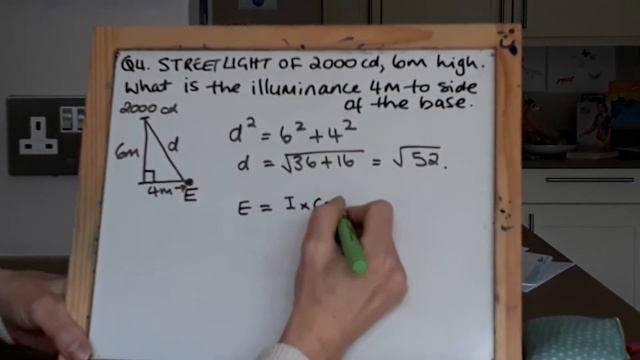 Q4. STREETLIGHT OF 2000 cd, 6m high.
What is the illuminance 4M to side
of the base.
2000 cd
6m
d
4m
E
d² = 6² + 4²
d = √36+16 = √52.
E = I x